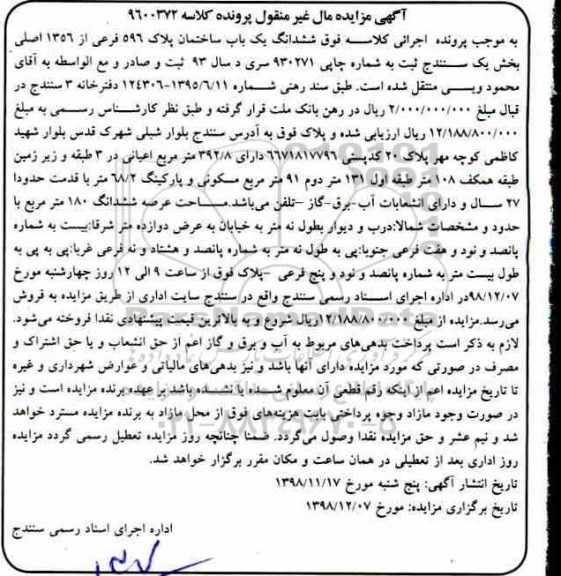 آگهی مزایده مال غیر منقول پرونده کلاسه ۹۶۰۰۳۷۲
به موجب پرونده اجرائی کلاسه فوق ششدانگ یک باب ساختمان پلاک ۵۹۶ فرعی از ۱۳۵۶ اصلی
بخش یک سنندج ثبت به شماره چاپی ۹۳۰۲۷۱ سری د سال ۹۳ ثبت و صادر و مع الواسطه به آقای
محمود ویسی منتقل شده است. طبق سند رهنی شماره ۱۲۴۳۰۶-۱۳۹۵/۶/۱۱ دفترخانه ۳ سنندج در
قبال مبلغ ۲/۰۰۰/۰۰۰/۰۰۰ ریال در رهن بانک ملت قرار گرفته و طبق نظر کارشناس رسمی به مبلغ
۱۲/۱۸۸/۸۰۰/۰۰۰ ریال ارزیابی شده و پلاک فوق به آدرس سنندج بلوار شبلی شهرک قدس بلوار شهید
کاظمی کوچه مهر پلاک ۲۰ کدپستی ۶۶۷۱۸۱۷۷۹۶ دارای ۳۹۲/۸ متر مربع اعیانی در ۳ طبقه و زیر زمین
طبقه همکف ۱۰۸ متر طبقه اول ۱۳۱ متر دوم ۹۱ متر مربع مسکونی و پارکینگ ۶۸/۲ متر با قدمت حدودا
۲۷ سال و دارای انشعابات آب-برق-گاز -تلفن می‌باشد.مساحت عرصه ششدانگ ۱۸۰ متر مربع با
حدود و مشخصات شمالا:درب و دیوار بطول نه متر به خیابان به عرض دوازده متر شرقا:بیست به شماره
پانصد و نود و هفت فرعی جنوبا:پی به طول نه متر به شماره پانصد و هشتاد و نه فرعی غربا:پی به پی به
طول بیست متر به شماره پانصد و نود و پنج فرعی -پلاک فوق از ساعت ۹ الی ۱۲ روز چهارشنبه مورخ
۹۸/۱۲/۰۷در اداره اجرای اسناد رسمی سنندج واقع در سنندج سایت اداری از طریق مزایده به فروش
می‌رسد.مزایده از مبلغ ۱۲/۱۸۸/۸۰۰/۰۰۰ریال شروع و به بالاترین قیمت پیشنهادی نقدا فروخته می‌شود.
لازم به ذکر است پرداخت بدهی‌های مربوط به آب و برق و گاز اعم از حق انشعاب و یا حق اشتراک و
مصرف در صورتی که مورد مزایده دارای آنها باشد و نیز بدهی‌های مالیاتی و عوارض شهرداری و غیره
تا تاریخ مزایده اعم از اینکه رقم قطعی آن معلوم شده یا نشده باشد بر عهده برنده مزایده است و نیز
در صورت وجود مازاد وجوه پرداختی بابت هزینه‌های فوق از محل مازاد به برنده مزایده مسترد خواهد
شد و نیم عشر و حق مزایده نقدا وصول می‌گردد. ضمنا چنانچه روز مزایده تعطیل رسمی گردد مزایده
روز اداری بعد از تعطیلی در همان ساعت و مکان مقرر برگزار خواهد شد.
تاریخ انتشار آگهی: پنج شنبه مورخ ۱۳۹۸/۱۱/۱۷
تاریخ برگزاری مزایده: مورخ ۱۳۹۸/۱۲/۰۷
اداره اجرای اسناد رسمی سنندج